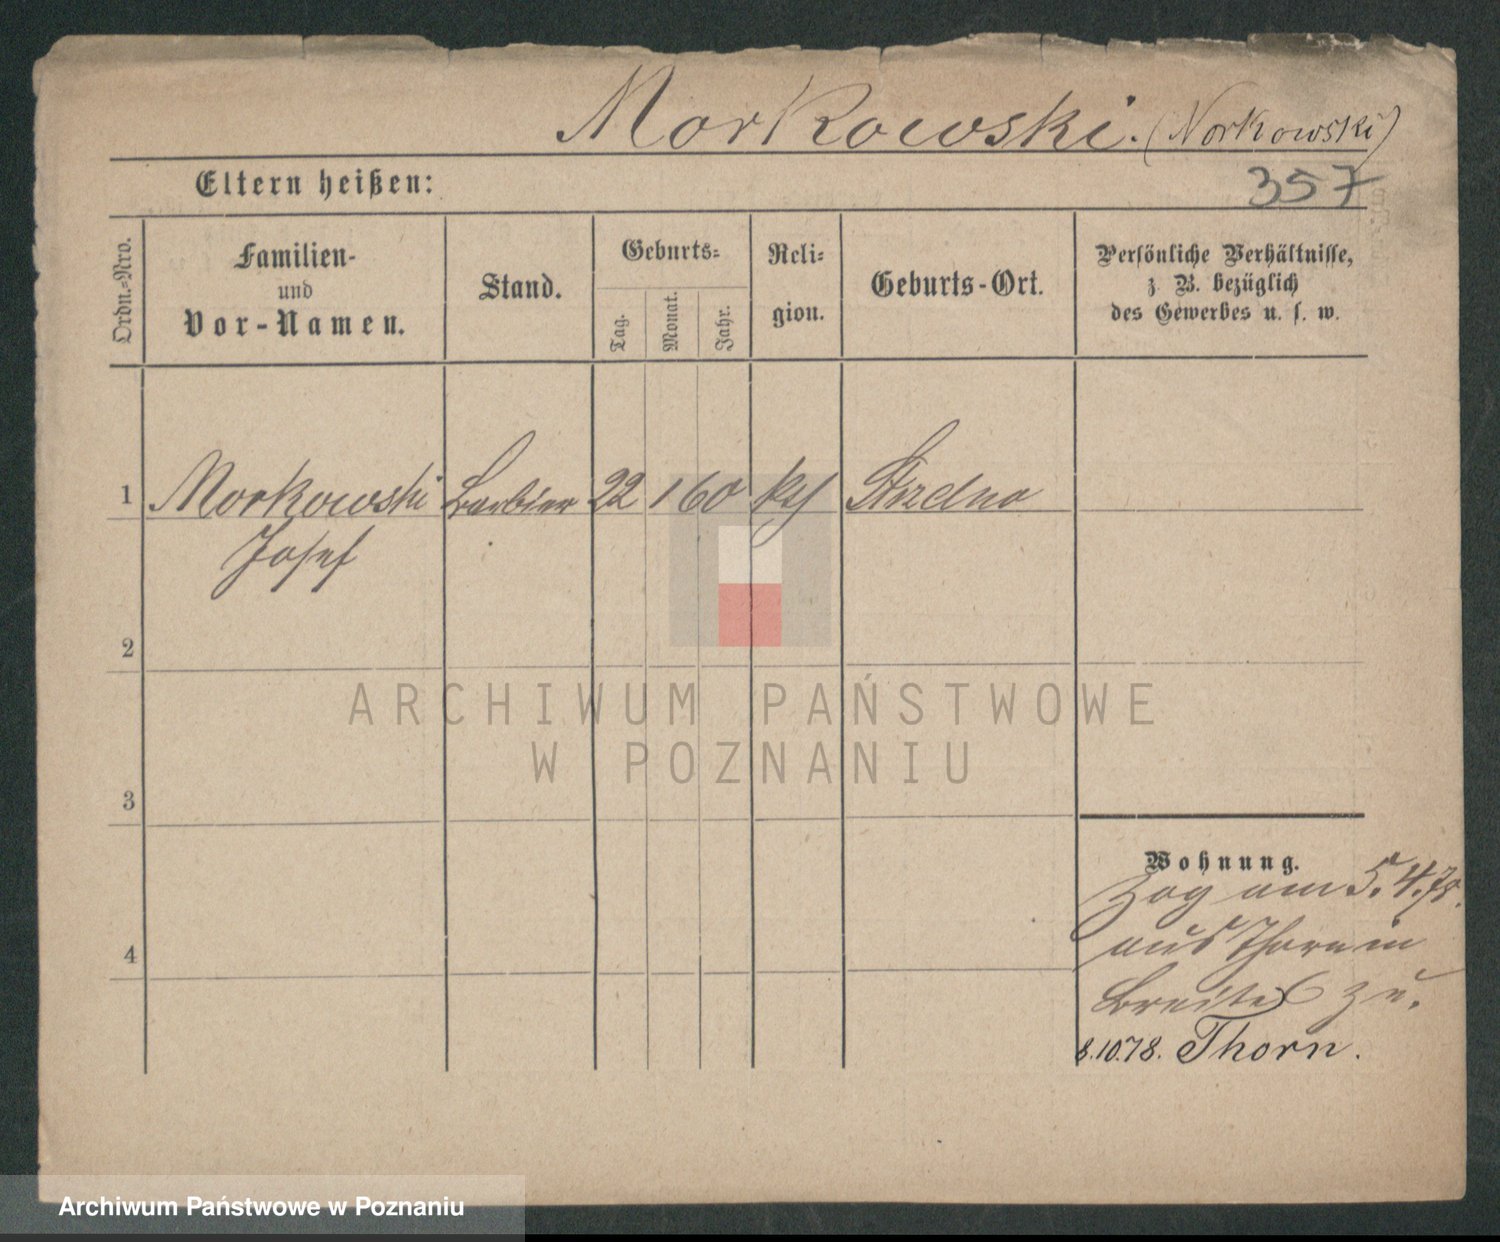 Morkowski. (Norkowski)
Eltern heißen:
357
Ordn.=Nro.
Familien-
und
Vor-Namen.
Stand.
Geburts=
Tag.
Monat.
Jahr.
Reli=
gion.
Geburts-Ort.
Persönliche Verhältnisse,
z. B. bezüglich
des Gewerbes u. s. w.
1 Morkowski Barbier 22 1 60 Strelno
Josef
2
3
Wohnung.
Zog am 5.4.78.
aus Thorn in
Breites zu.
4
8.10.78. Thorn.
ARCHIWUM PAŃSTWOWE
W POZNANIU
Archiwum Państwowe w Poznaniu